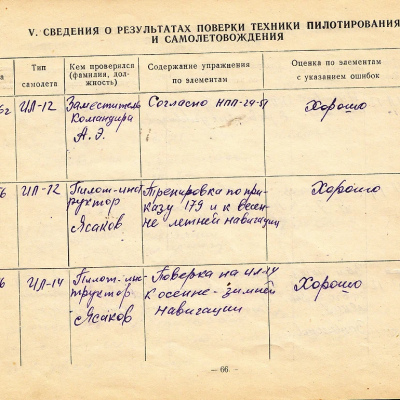 V. СВЕДЕНИЯ О РЕЗУЛЬТАТАХ ПОВЕРКИ ТЕХНИКИ ПИЛОТИРОВАНИЯ
И САМОЛЕТОВОЖДЕНИЯ
Тип
самолета
Кем проверялся
(фамилия, дол-
жность)
Содержание упражнения
по элементам
Оценка по элементам
с указанием ошибок
ИЛ-12
Заместитель
Командира
А.Э.
Согласно НПП-24-51
Хорошо
ИЛ-12
Пилот-инс
труктор
Ясаков
Тренировка по при-
казу 179 и к весен-
не летней навигации
Хорошо
ИЛ-14
Пилот-инс
труктор
Ясаков
Поверка на ил-14
К осенне-зимней
навигации
Хорошо
— 66 —